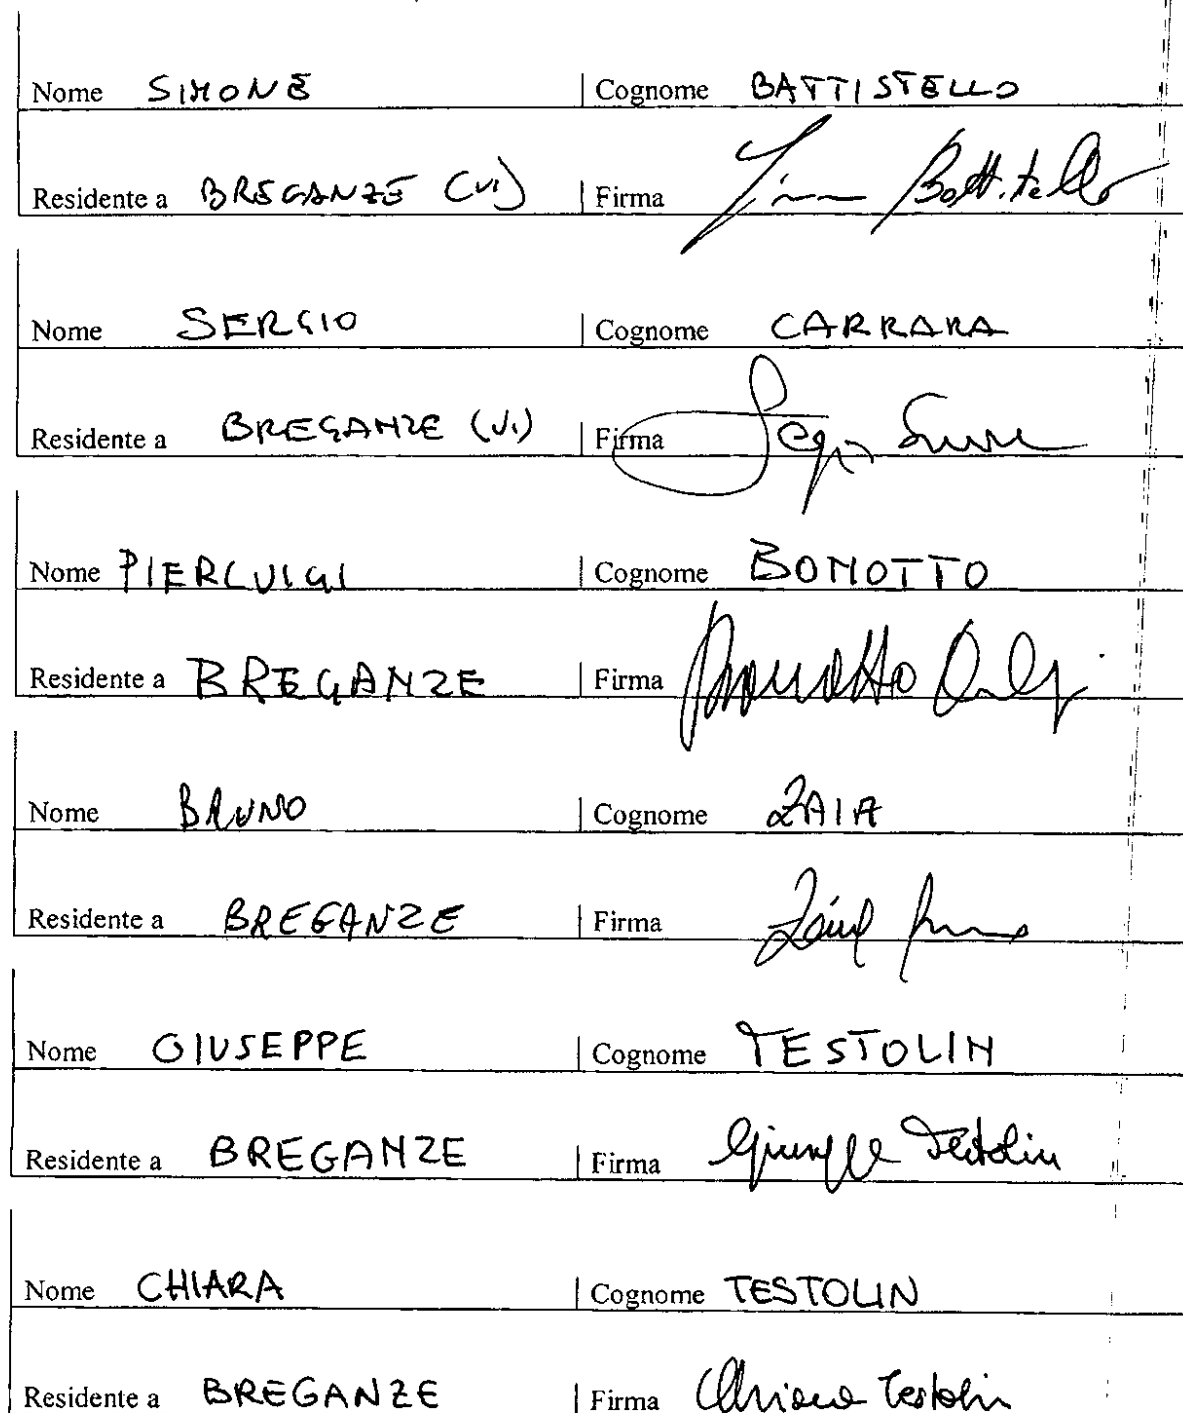 Nome SIMONE | Cognome BATTISTELLO
Residente a BREGANZE (VI) | Firma Battistello
Nome SERGIO | Cognome CARRARA
Residente a BREGANZE (VI) | Firma Sergio
Nome PIERLUIGI | Cognome BONOTTO
Residente a BREGANZE | Firma Bonotto
Nome BRUNO | Cognome ZAIA
Residente a BREGANZE | Firma
Nome GIUSEPPE | Cognome TESTOLIN
Residente a BREGANZE | Firma Giuseppe Testolin
Nome CHIARA | Cognome TESTOLIN
Residente a BREGANZE | Firma Chiara Testolin